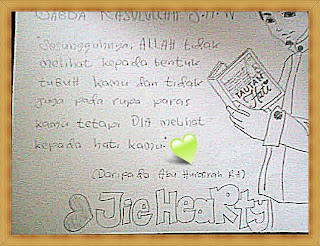 SABDA RASULULLAH S.A.W
"Sesungguhnya, ALLAH tidak
melihat kepada bentuk
tubuh kamu dan tidak
juga pada rupa paras
kamu tetapi DIA melihat
kepada hati kamu"
(Daripada Abu Hurairah RA)
Jie HeaRty